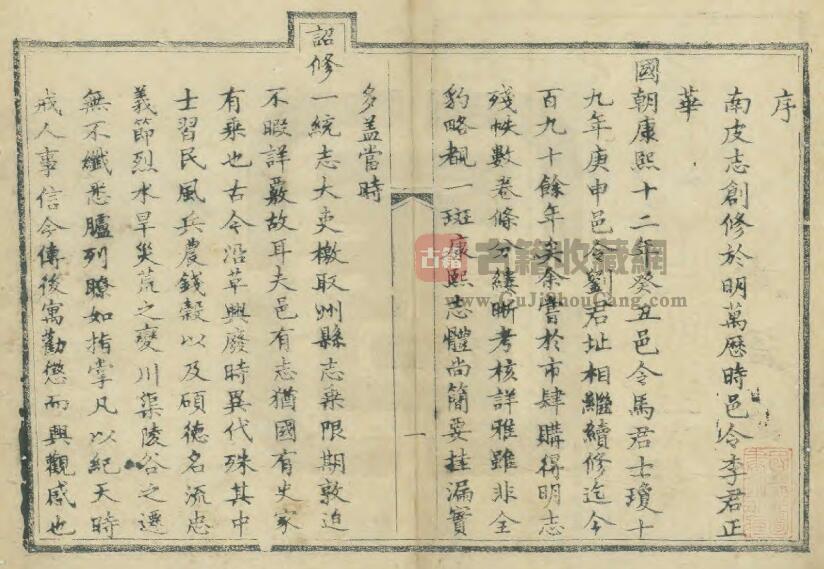 序
南皮志創修於明萬厯時邑令李君正
華
國朝康熙十二年癸丑邑令馬君士瓊十
九年庚申邑令劉君址相繼續修迄今
百九十餘年矣余嘗於市肆購得明志
殘帙數卷條分縷晰考核詳雅雖非全
豹略覩一斑康熙志體尚簡要挂漏實
多蓋當時
詔修一統志大吏檄取州縣志乗限期敦迫
不暇詳覈故耳夫邑有志猶國有史家
有乗也古今沿革興廢時異代殊其中
士習民風兵農錢穀以及碩德名流忠
義節烈水旱災荒之變川渠陵谷之遷
無不纖悉臚列瞭如指掌凡以紀天時
戒人事信今傳後寓勸懲而興觀感也
一
古籍
古籍收藏網
www.GuJiShouCang.com